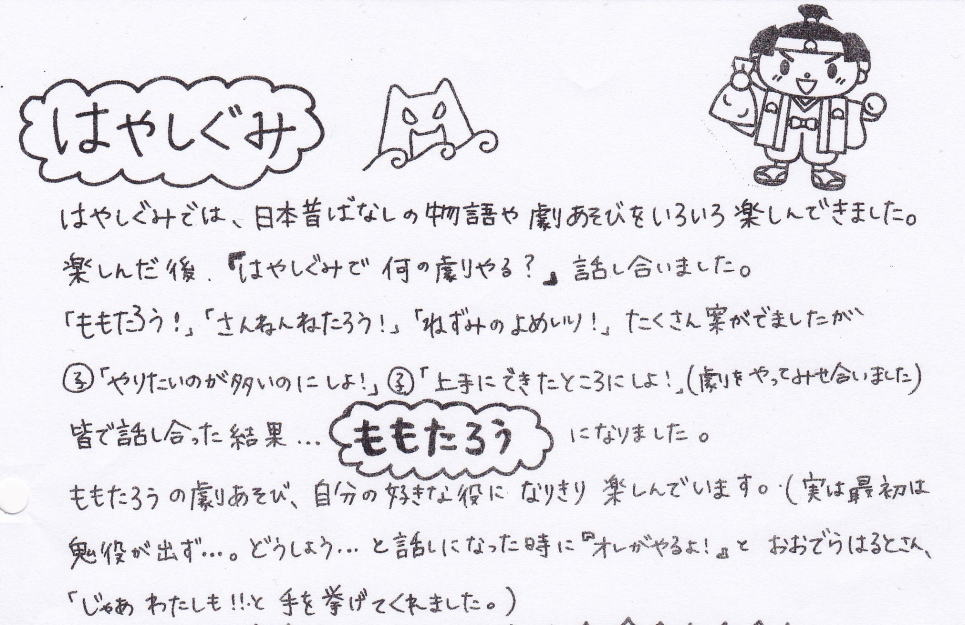 はやしぐみ
はやしぐみでは、日本昔ばなしの物語や劇あそびをいろいろ楽しんできました。
楽しんだ後、『はやしぐみで何の劇やる？』話し合いました。
「ももたろう！」「さんねんねたろう！」「ねずみのよめいり！」たくさん案がでましたが
子「やりたいのが多いのにしよ！」子「上手にできたところにしよ！」(劇をやってみせ合いました)
皆で話し合った結果…ももたろうになりました。
ももたろうの劇あそび、自分の好きな役になりきり楽しんでいます。(実は最初は
鬼役が出ず…。どうしよう…と話しになった時に『オレがやるよ！』とおおでらはるとさん、
「じゃあわたしも!!と手を挙げてくれました。)